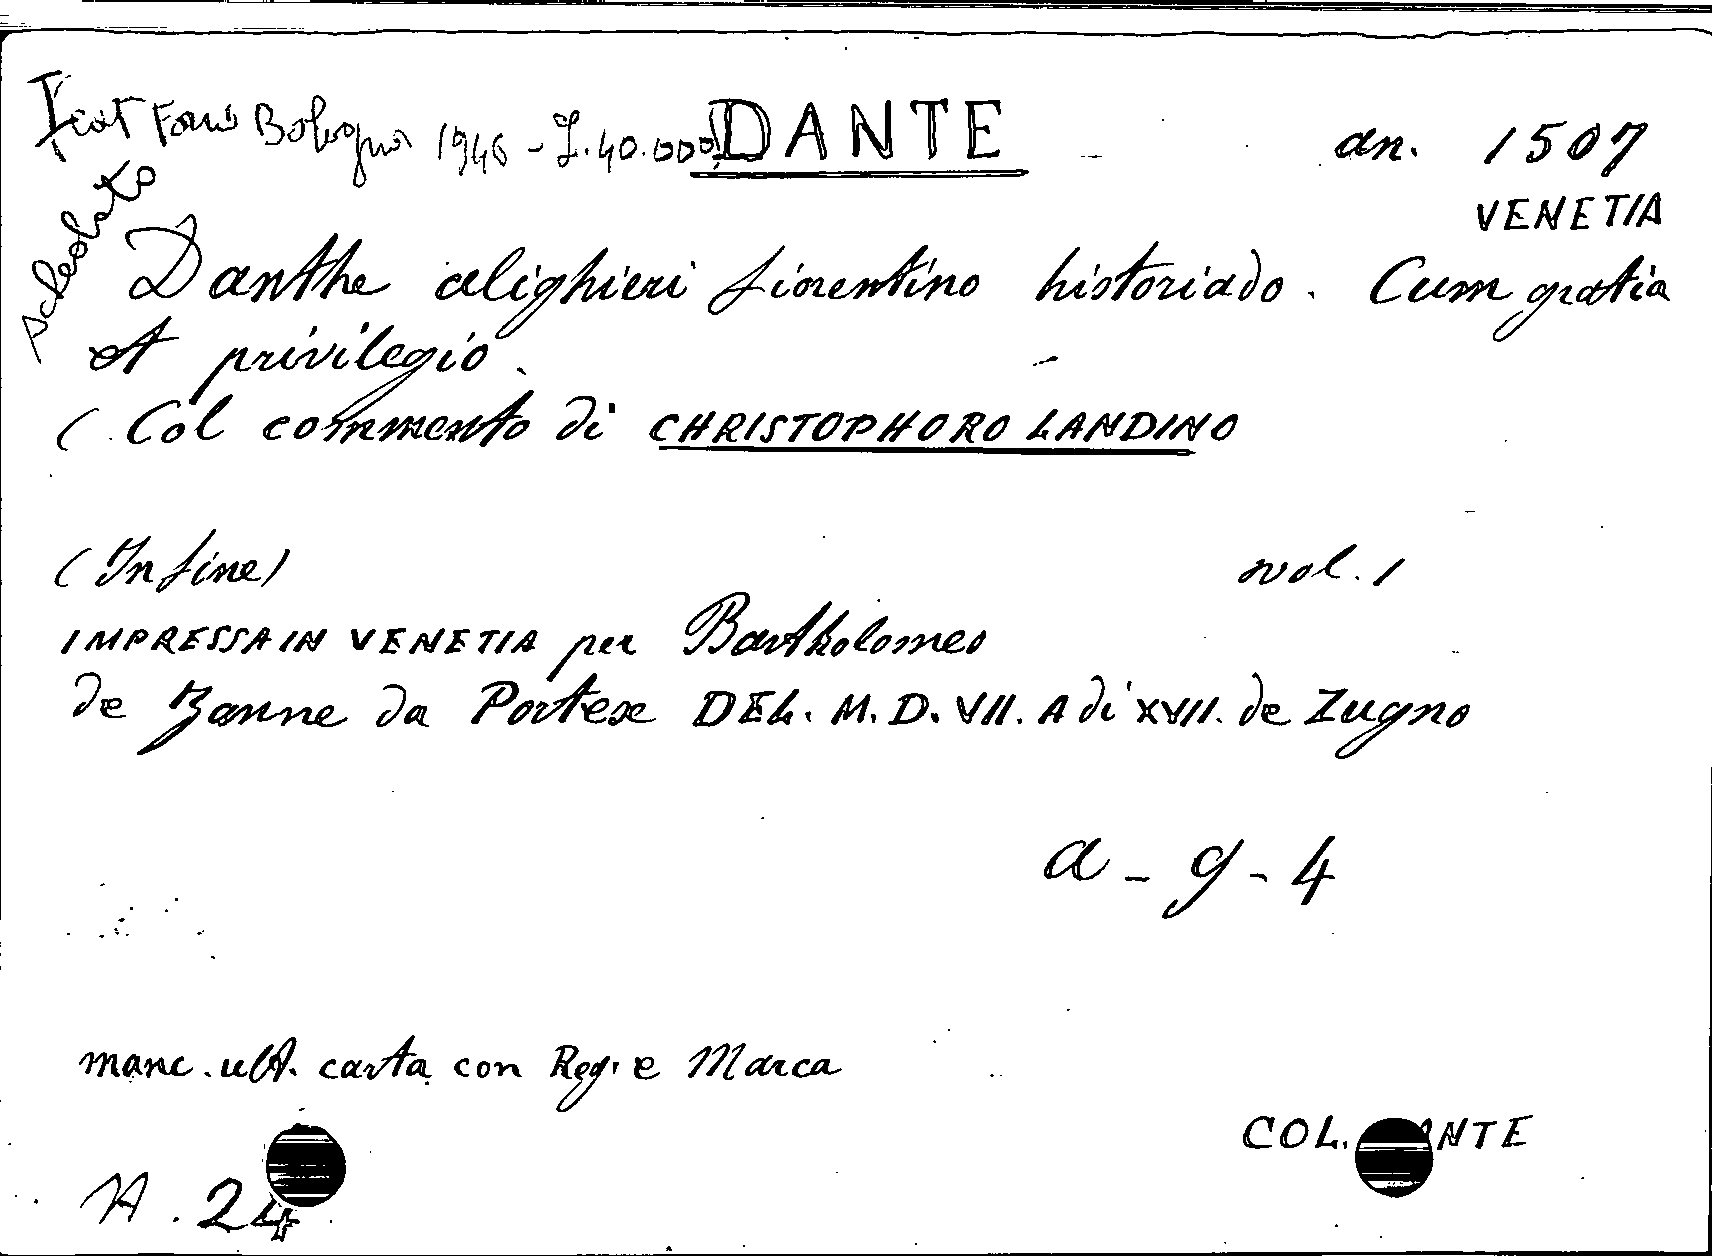 Bologna 1946 - L. 40.000
DANTE
an. 1507
VENETIA
Danthe alighieri fiorentino historiado. Cum gratia
et privilegio.
( Col commento di CHRISTOPHORO LANDINO
(In fine)
vol. 1
IMPRESSA IN VENETIA per Bartholomeo
de Zanne da Portese DEL. M. D. VII. A di XVII. de Zugno
a - g - 4
manc. ult. carta con Reg. e Marca
COL.
N. 24